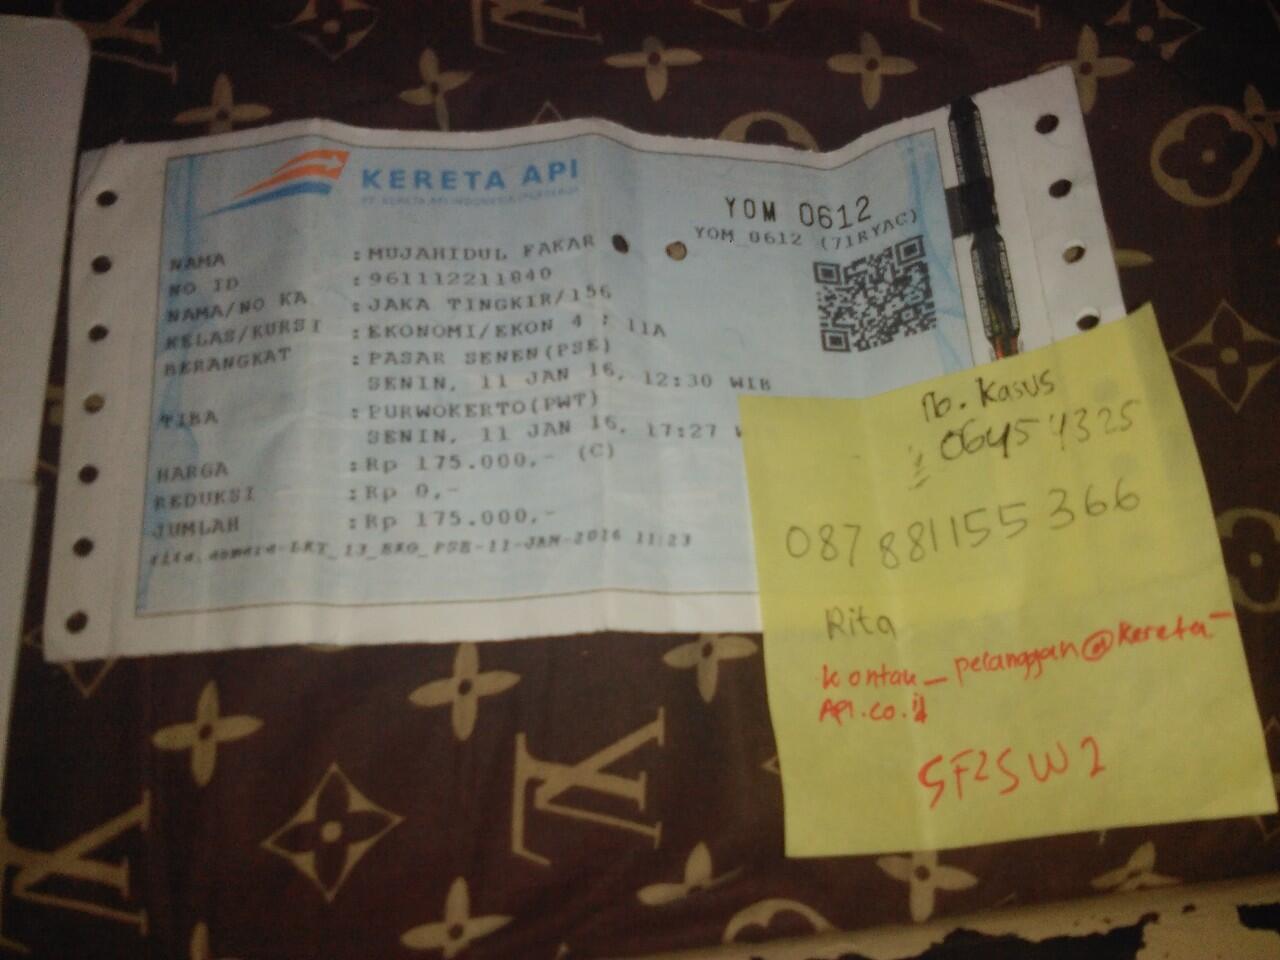 KERETA API
YOM 0612
YOM_0612 (71RYAC)
NAMA : MUJAHIDUL FAKAR
NO ID : 961112211840
NAMA/NO KA : JAKA TINGKIR/156
KELAS/KURSI : EKONOMI/EKON 4 : 11A
BERANGKAT : PASAR SENEN(PSE)
SENIN, 11 JAN 16, 12:30 WIB
TIBA : PURWOKERTO(PWT)
SENIN, 11 JAN 16, 17:27
HARGA : Rp 175.000,- (C)
REDUKSI : Rp 0,-
JUMLAH : Rp 175.000,-
PSE-11-JAN-2016 11:23
No. Kasus
: 06454325
087881155366
Rita
kontak_pelanggan@kereta-
Api.co.id
SF2SW2